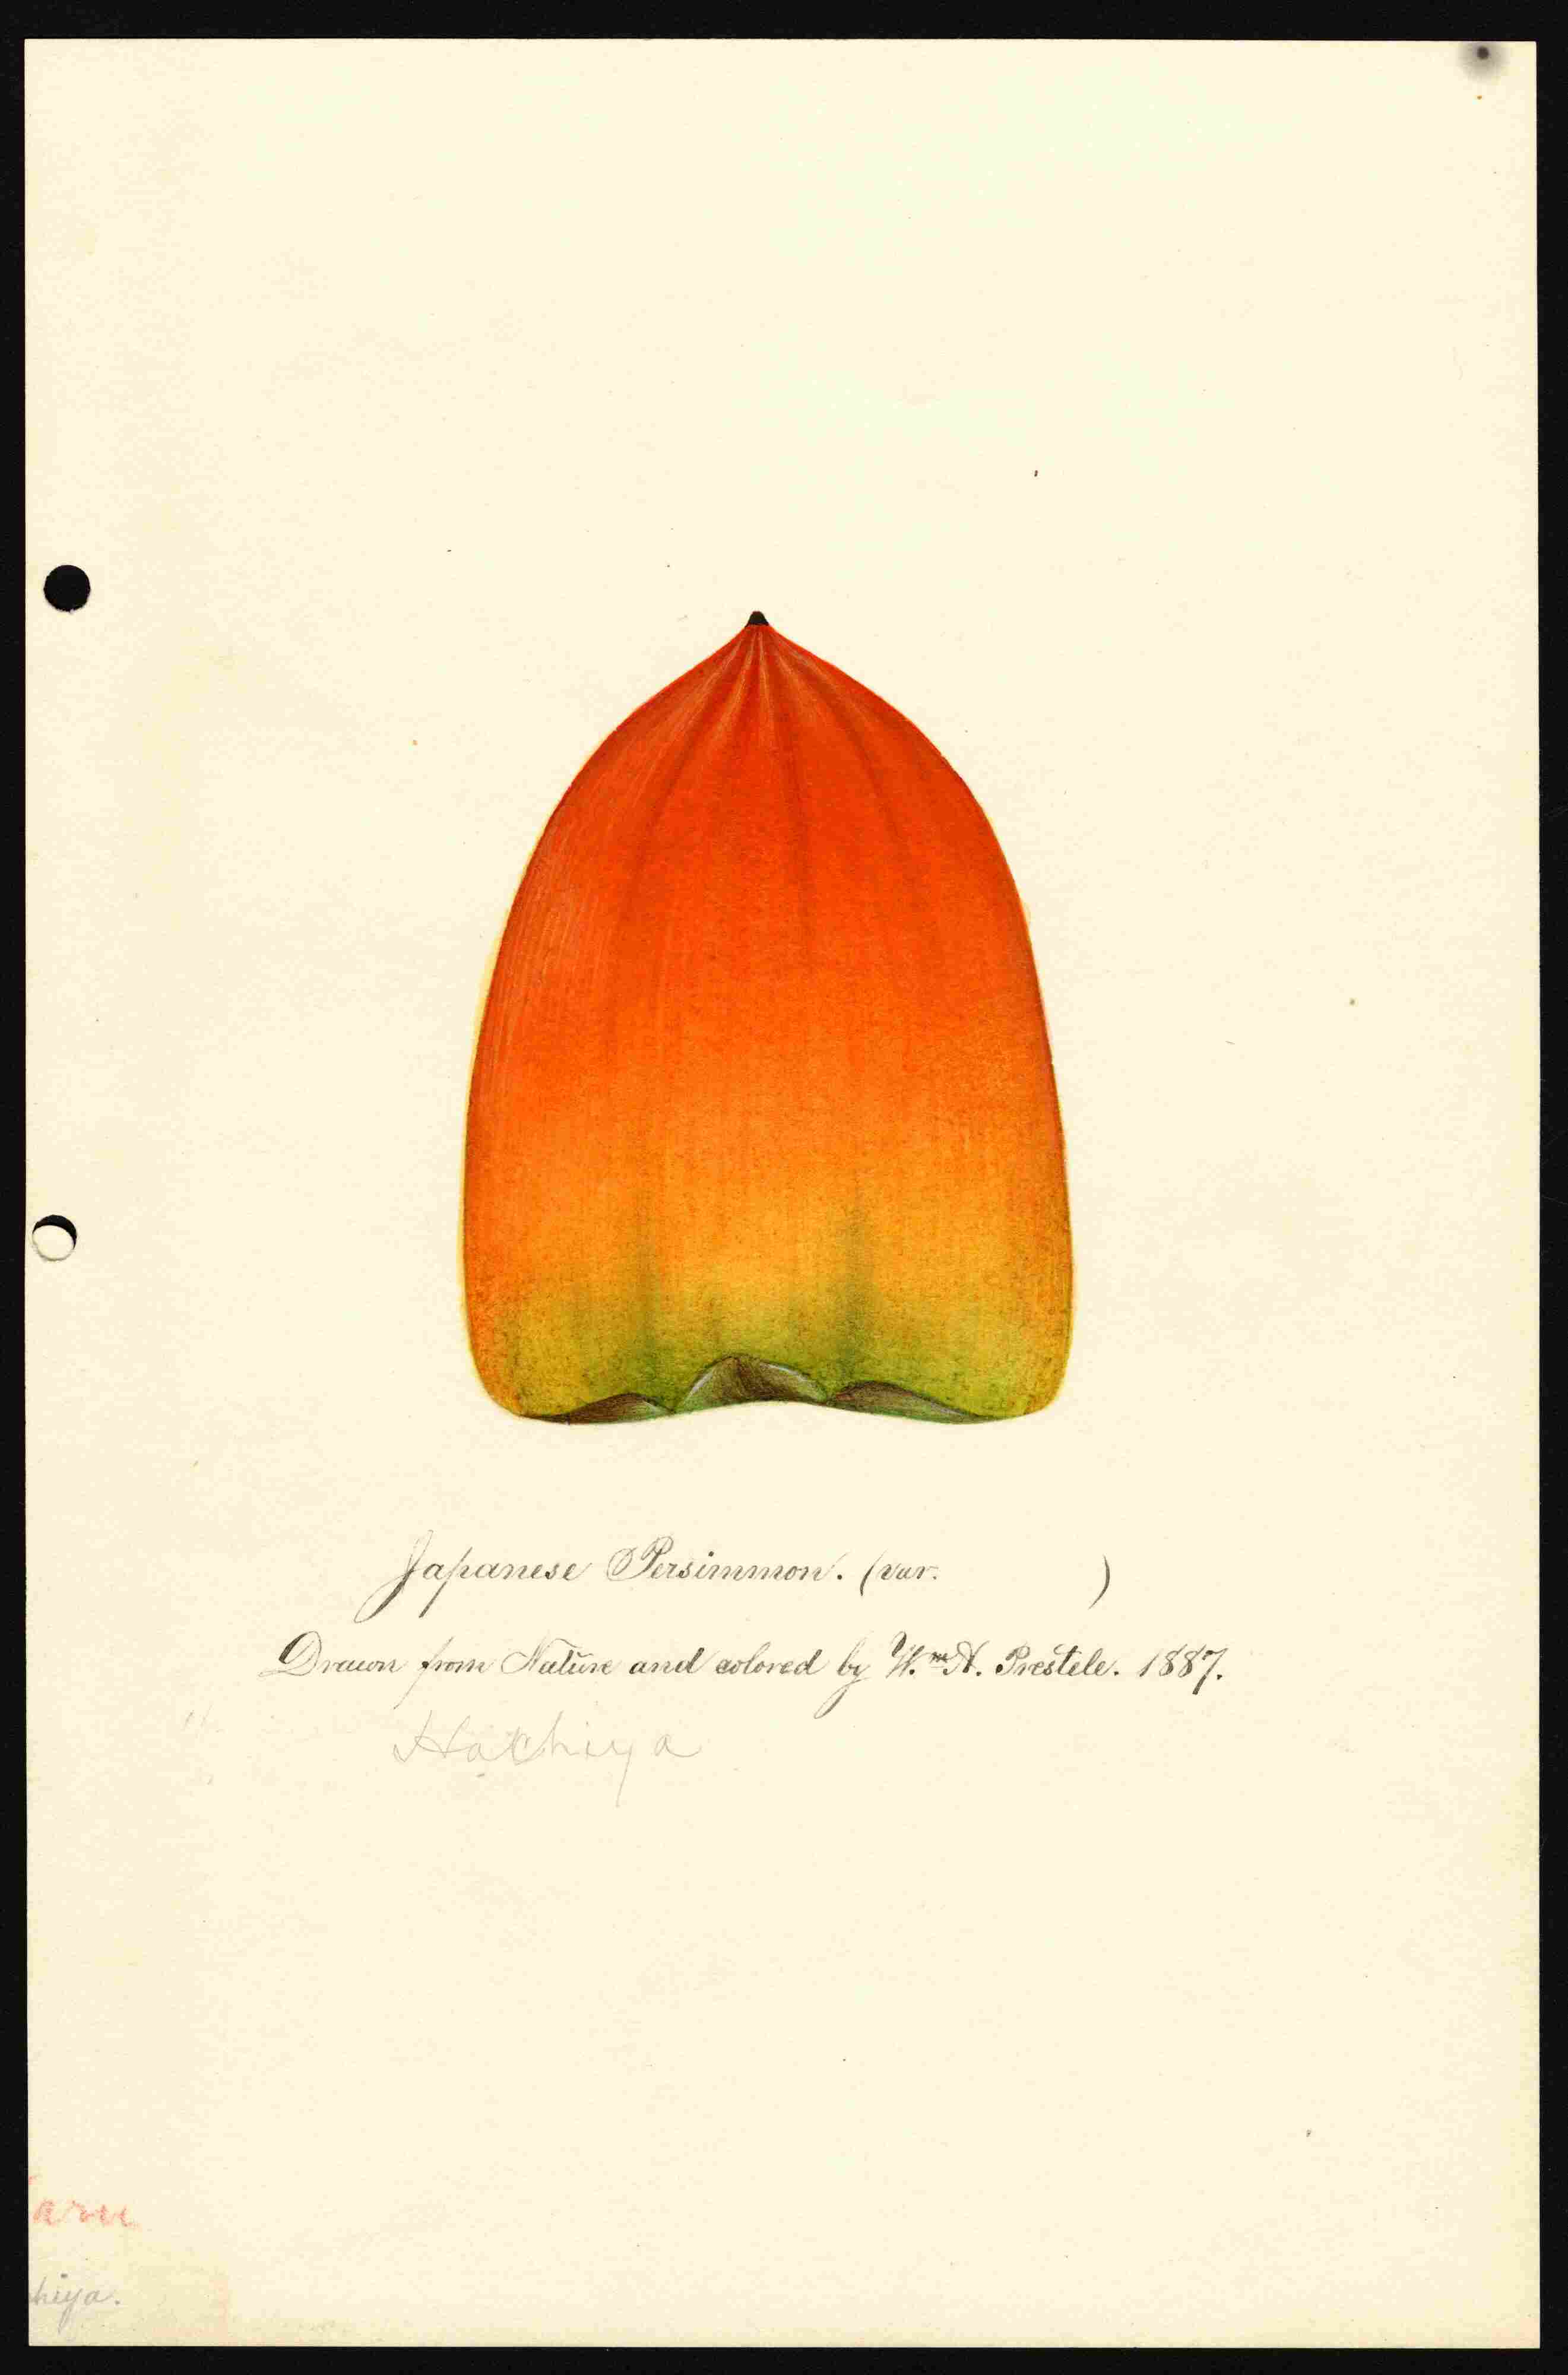 Japanese Persimmon. (var. )
Drawn from Nature and colored by W.m H. Prestele. 1887.
Hachiya
aru
hiya.